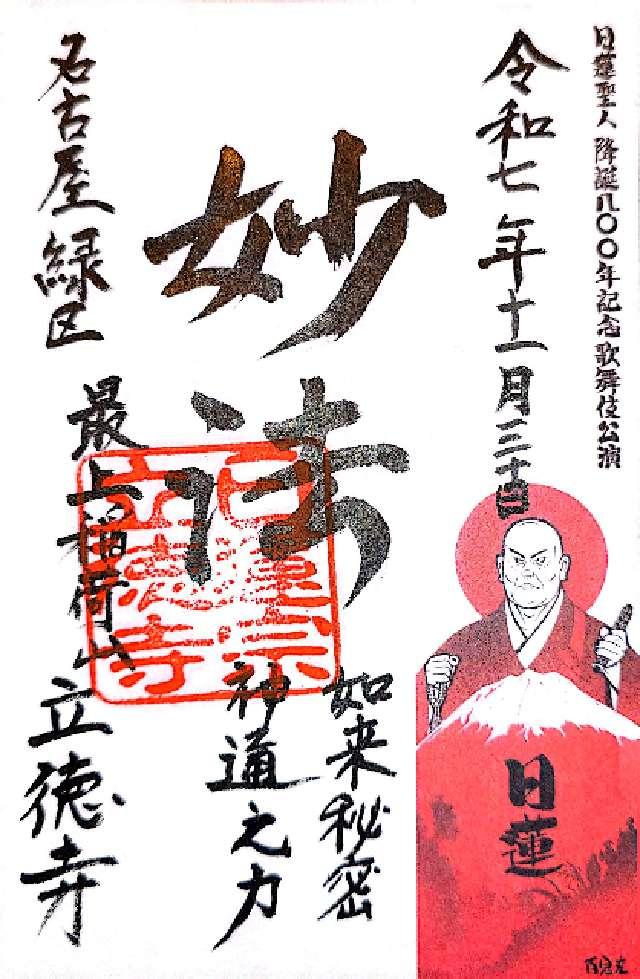 日蓮聖人 降誕八〇〇年記念 歌舞伎公演
令和七年十一月三十日
妙法
如来秘密
神通之力
名古屋緑区
最上稲荷山立徳寺
日蓮宗
立徳寺
日蓮